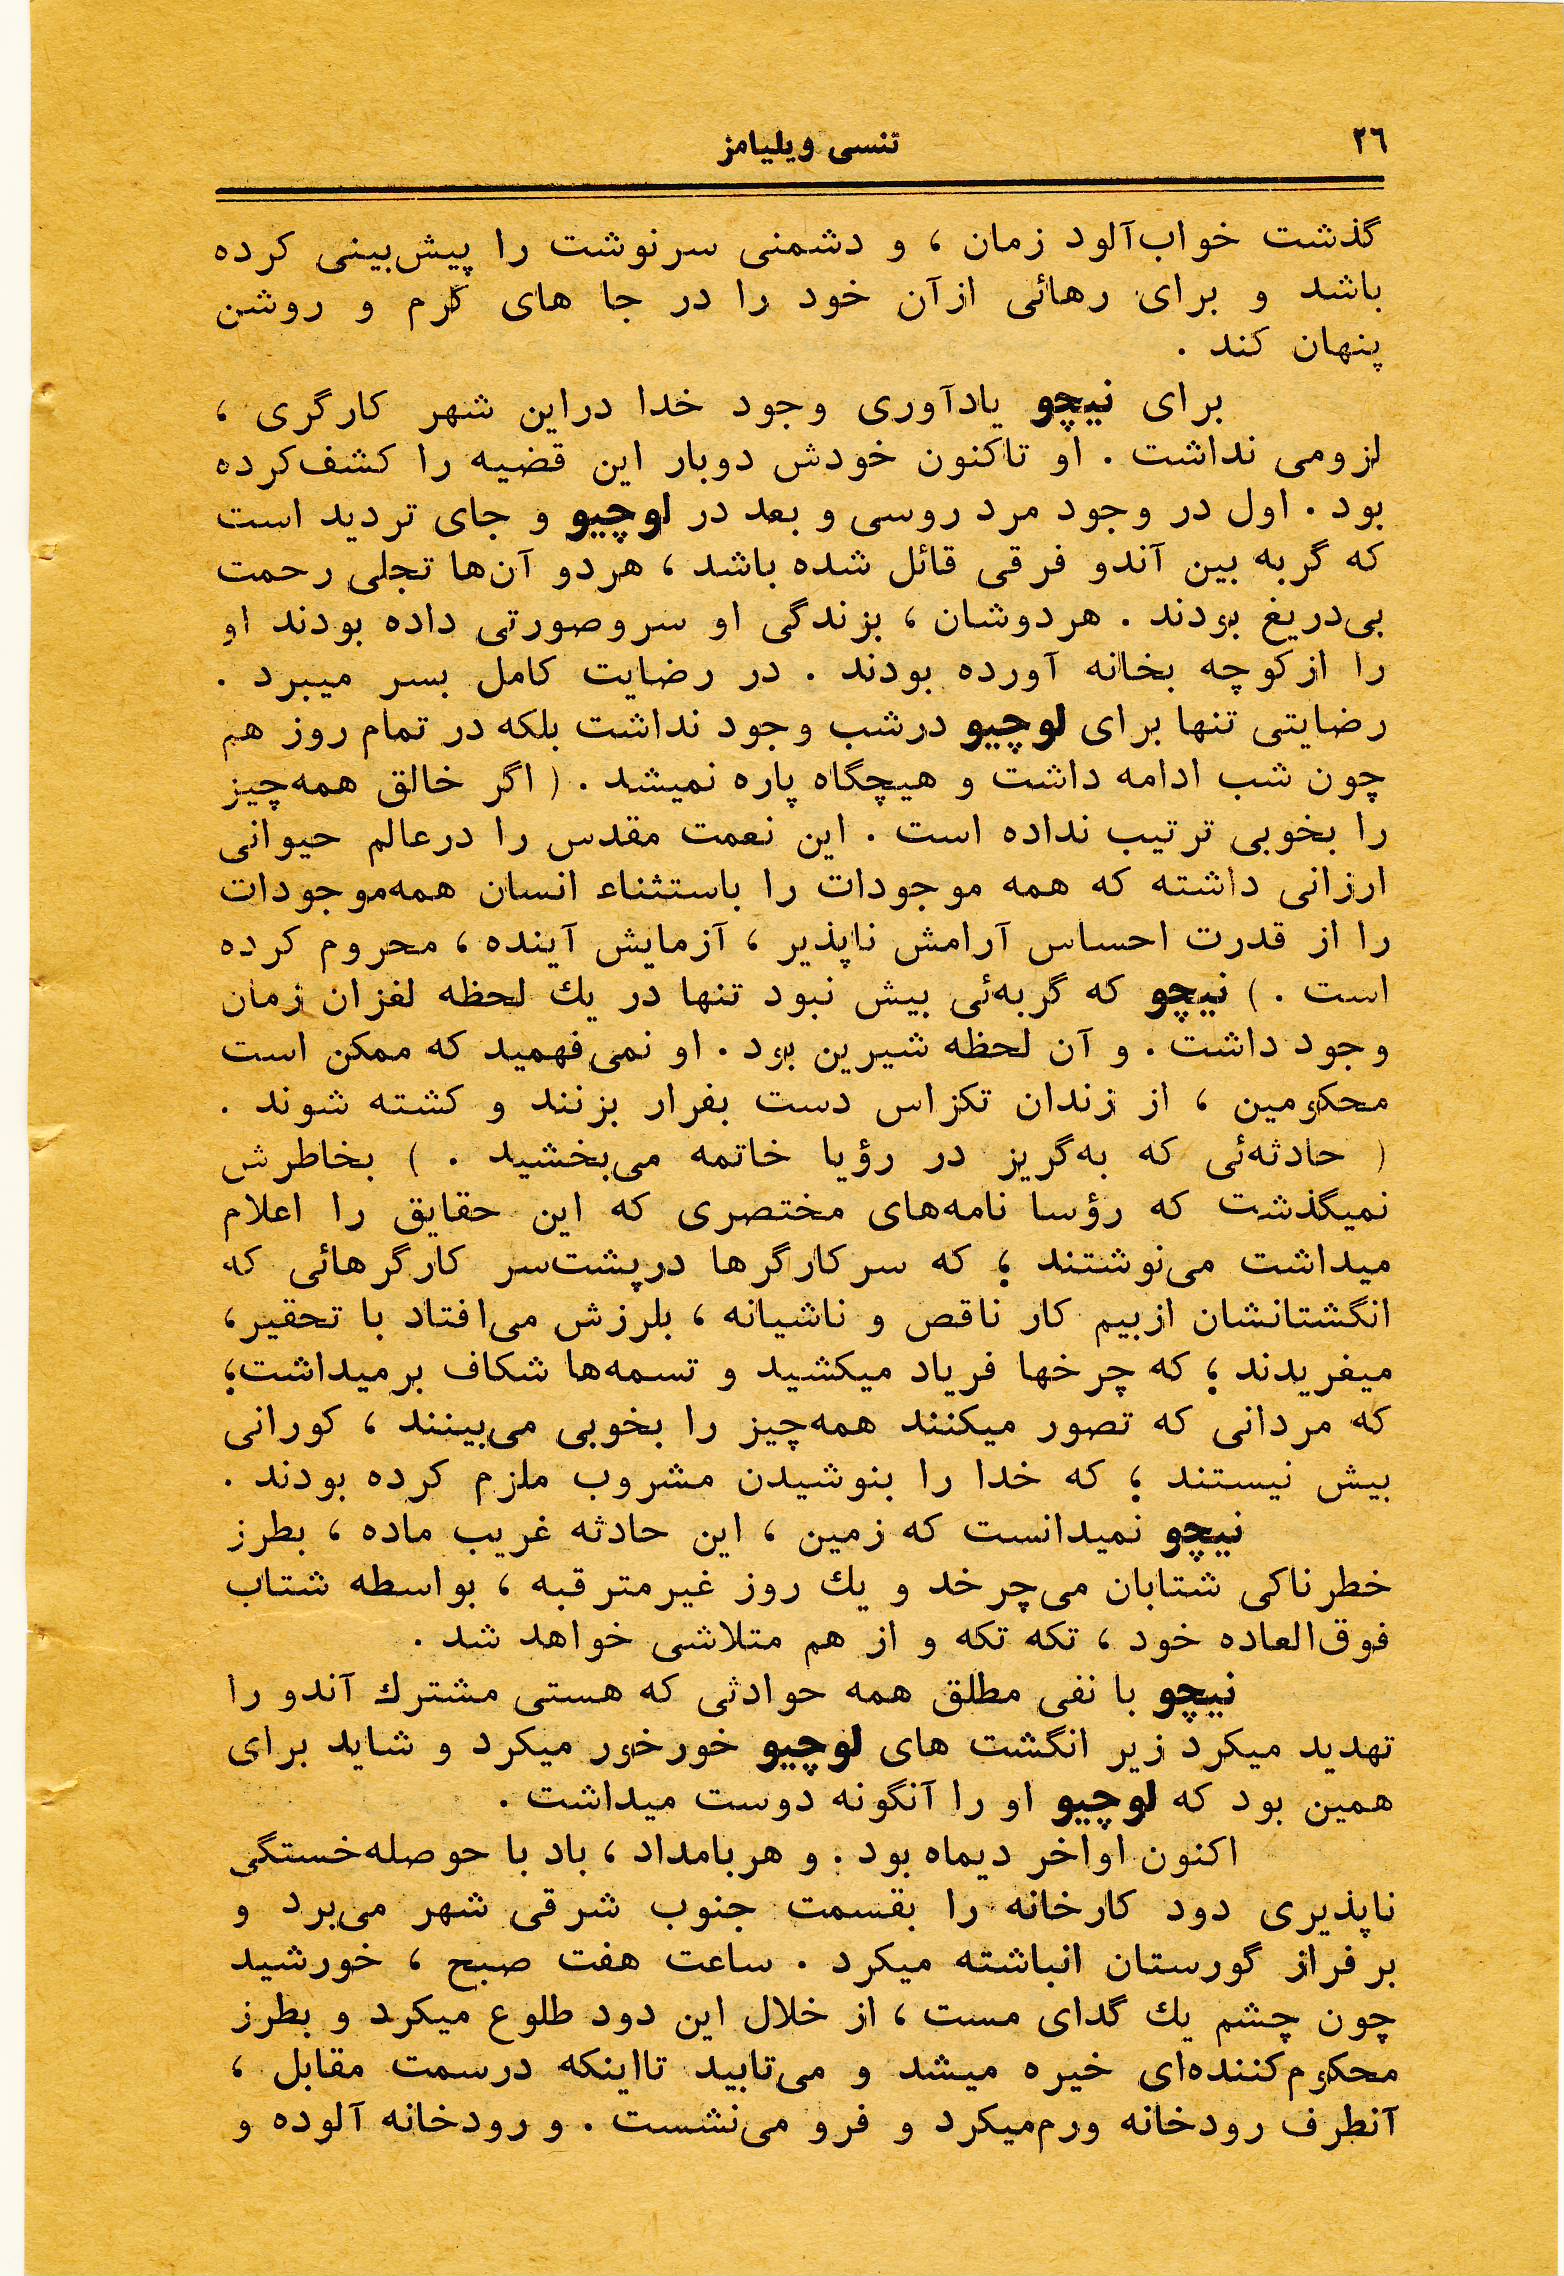 ۲٦
تنسی ویلیامز
گذشت خواب‌آلود زمان ، و دشمنی سرنوشت را پیش‌بینی کرده
باشد و برای رهائی ازآن خود را در جا های گرم و روشن
پنهان کند .
برای نیچو یادآوری وجود خدا دراین شهر کارگری ،
لزومی نداشت . او تاکنون خودش دوبار این قضیه را کشف‌کرده
بود . اول در وجود مرد روسی و بعد در لوچیو و جای تردید است
که گربه بین آندو فرقی قائل شده باشد ، هردو آن‌ها تجلی رحمت
بی‌دریغ بودند . هردوشان ، بزندگی او سروصورتی داده بودند او
را ازکوچه بخانه آورده بودند . در رضایت کامل بسر میبرد .
رضایتی تنها برای لوچیو درشب وجود نداشت بلکه در تمام روز هم
چون شب ادامه داشت و هیچگاه پاره نمیشد . ( اگر خالق همه‌چیز
را بخوبی ترتیب نداده است . این نعمت مقدس را درعالم حیوانی
ارزانی داشته که همه موجودات را باستثناء انسان همه‌موجودات
را از قدرت احساس آرامش ناپذیر ، آزمایش آینده ، محروم کرده
است . ) نیچو که گربه‌ئی بیش نبود تنها در یك لحظه لغزان زمان
وجود داشت . و آن لحظه شیرین بود . او نمی‌فهمید که ممکن است
محکومین ، از زندان تکزاس دست بفرار بزنند و کشته شوند .
( حادثه‌ئی که به‌گریز در رؤیا خاتمه می‌بخشید . ) بخاطرش
نمیگذشت که رؤسا نامه‌های مختصری که این حقایق را اعلام
میداشت می‌نوشتند ؛ که سرکارگرها درپشت‌سر کارگرهائی که
انگشتانشان ازبیم کار ناقص و ناشیانه ، بلرزش می‌افتاد با تحقیر،
میغریدند ؛ که چرخها فریاد میکشید و تسمه‌ها شکاف برمیداشت؛
که مردانی که تصور میکنند همه‌چیز را بخوبی می‌بینند ، کورانی
بیش نیستند ؛ که خدا را بنوشیدن مشروب ملزم کرده بودند .
نیچو نمیدانست که زمین ، این حادثه غریب ماده ، بطرز
خطرناکی شتابان می‌چرخد و یك روز غیرمترقبه ، بواسطه شتاب
فوق‌العاده خود ، تکه تکه و از هم متلاشی خواهد شد .
نیچو با نفی مطلق همه حوادثی که هستی مشترك آندو را
تهدید میکرد زیر انگشت های لوچیو خورخور میکرد و شاید برای
همین بود که لوچیو او را آنگونه دوست میداشت .
اکنون اواخر دیماه بود . و هربامداد ، باد با حوصله‌خستگی
ناپذیری دود کارخانه را بقسمت جنوب شرقی شهر می‌برد و
برفراز گورستان انباشته میکرد . ساعت هفت صبح ، خورشید
چون چشم یك گدای مست ، از خلال این دود طلوع میکرد و بطرز
محکوم‌کننده‌ای خیره میشد و می‌تابید تااینکه درسمت مقابل ،
آنطرف رودخانه ورم‌میکرد و فرو می‌نشست . و رودخانه آلوده و